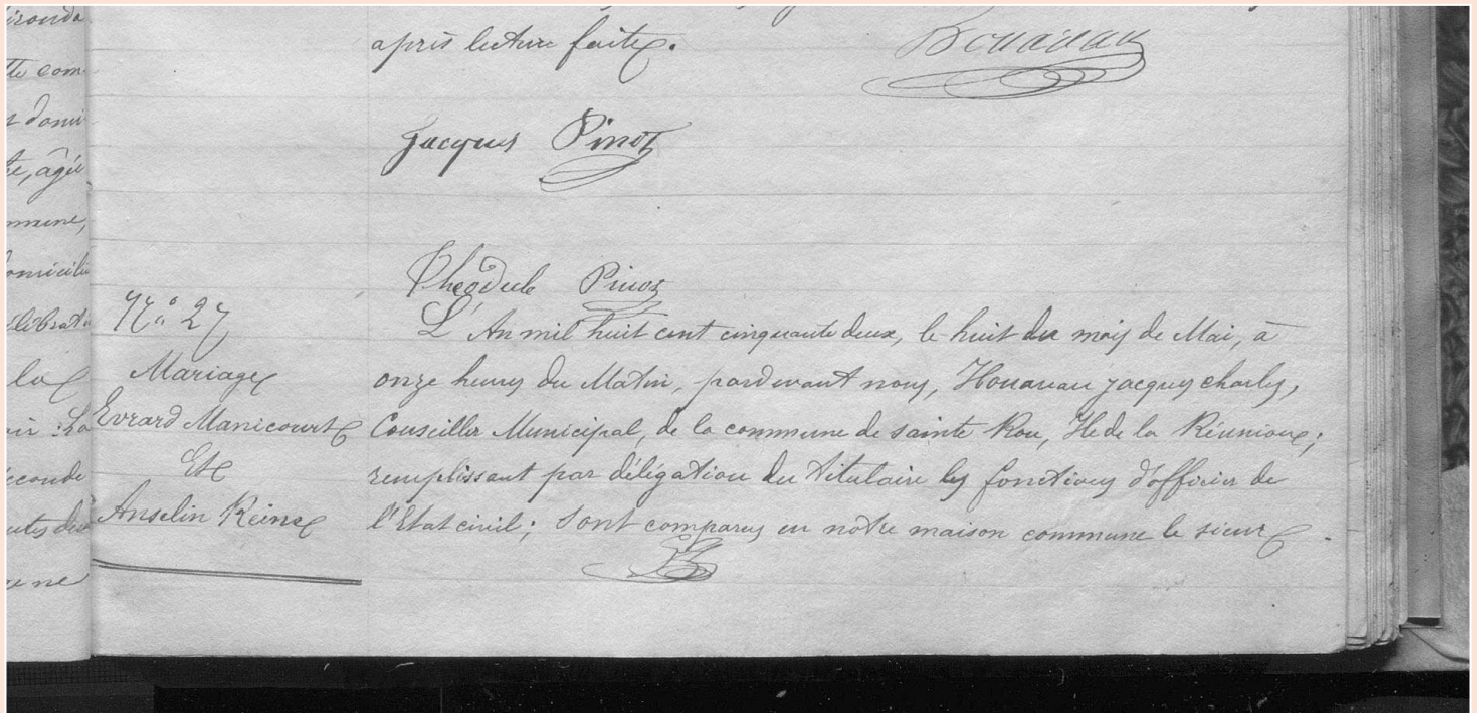 après lecture faite.
Jacques Pinot
Theodule Pinot
ironda
tte com
t domi
te, âgée
mmune,
omicilié
élébrat
la
ir : La
econde
utes deux
ne
N.° 27
Mariage
Evrard Manicourt
Et
Anselin Reine
L'An mil huit cent cinquante deux, le huit du mois de Mai, à
onze heures du Matin, pardevant nous, Houarau jacques charles,
Conseiller Municipal, de la commune de sainte Rose, Ile de la Réunion;
remplissant par délégation du titulaire les fonctions d'officier de
l'Etat civil; Sont comparus en notre maison commune le sieur